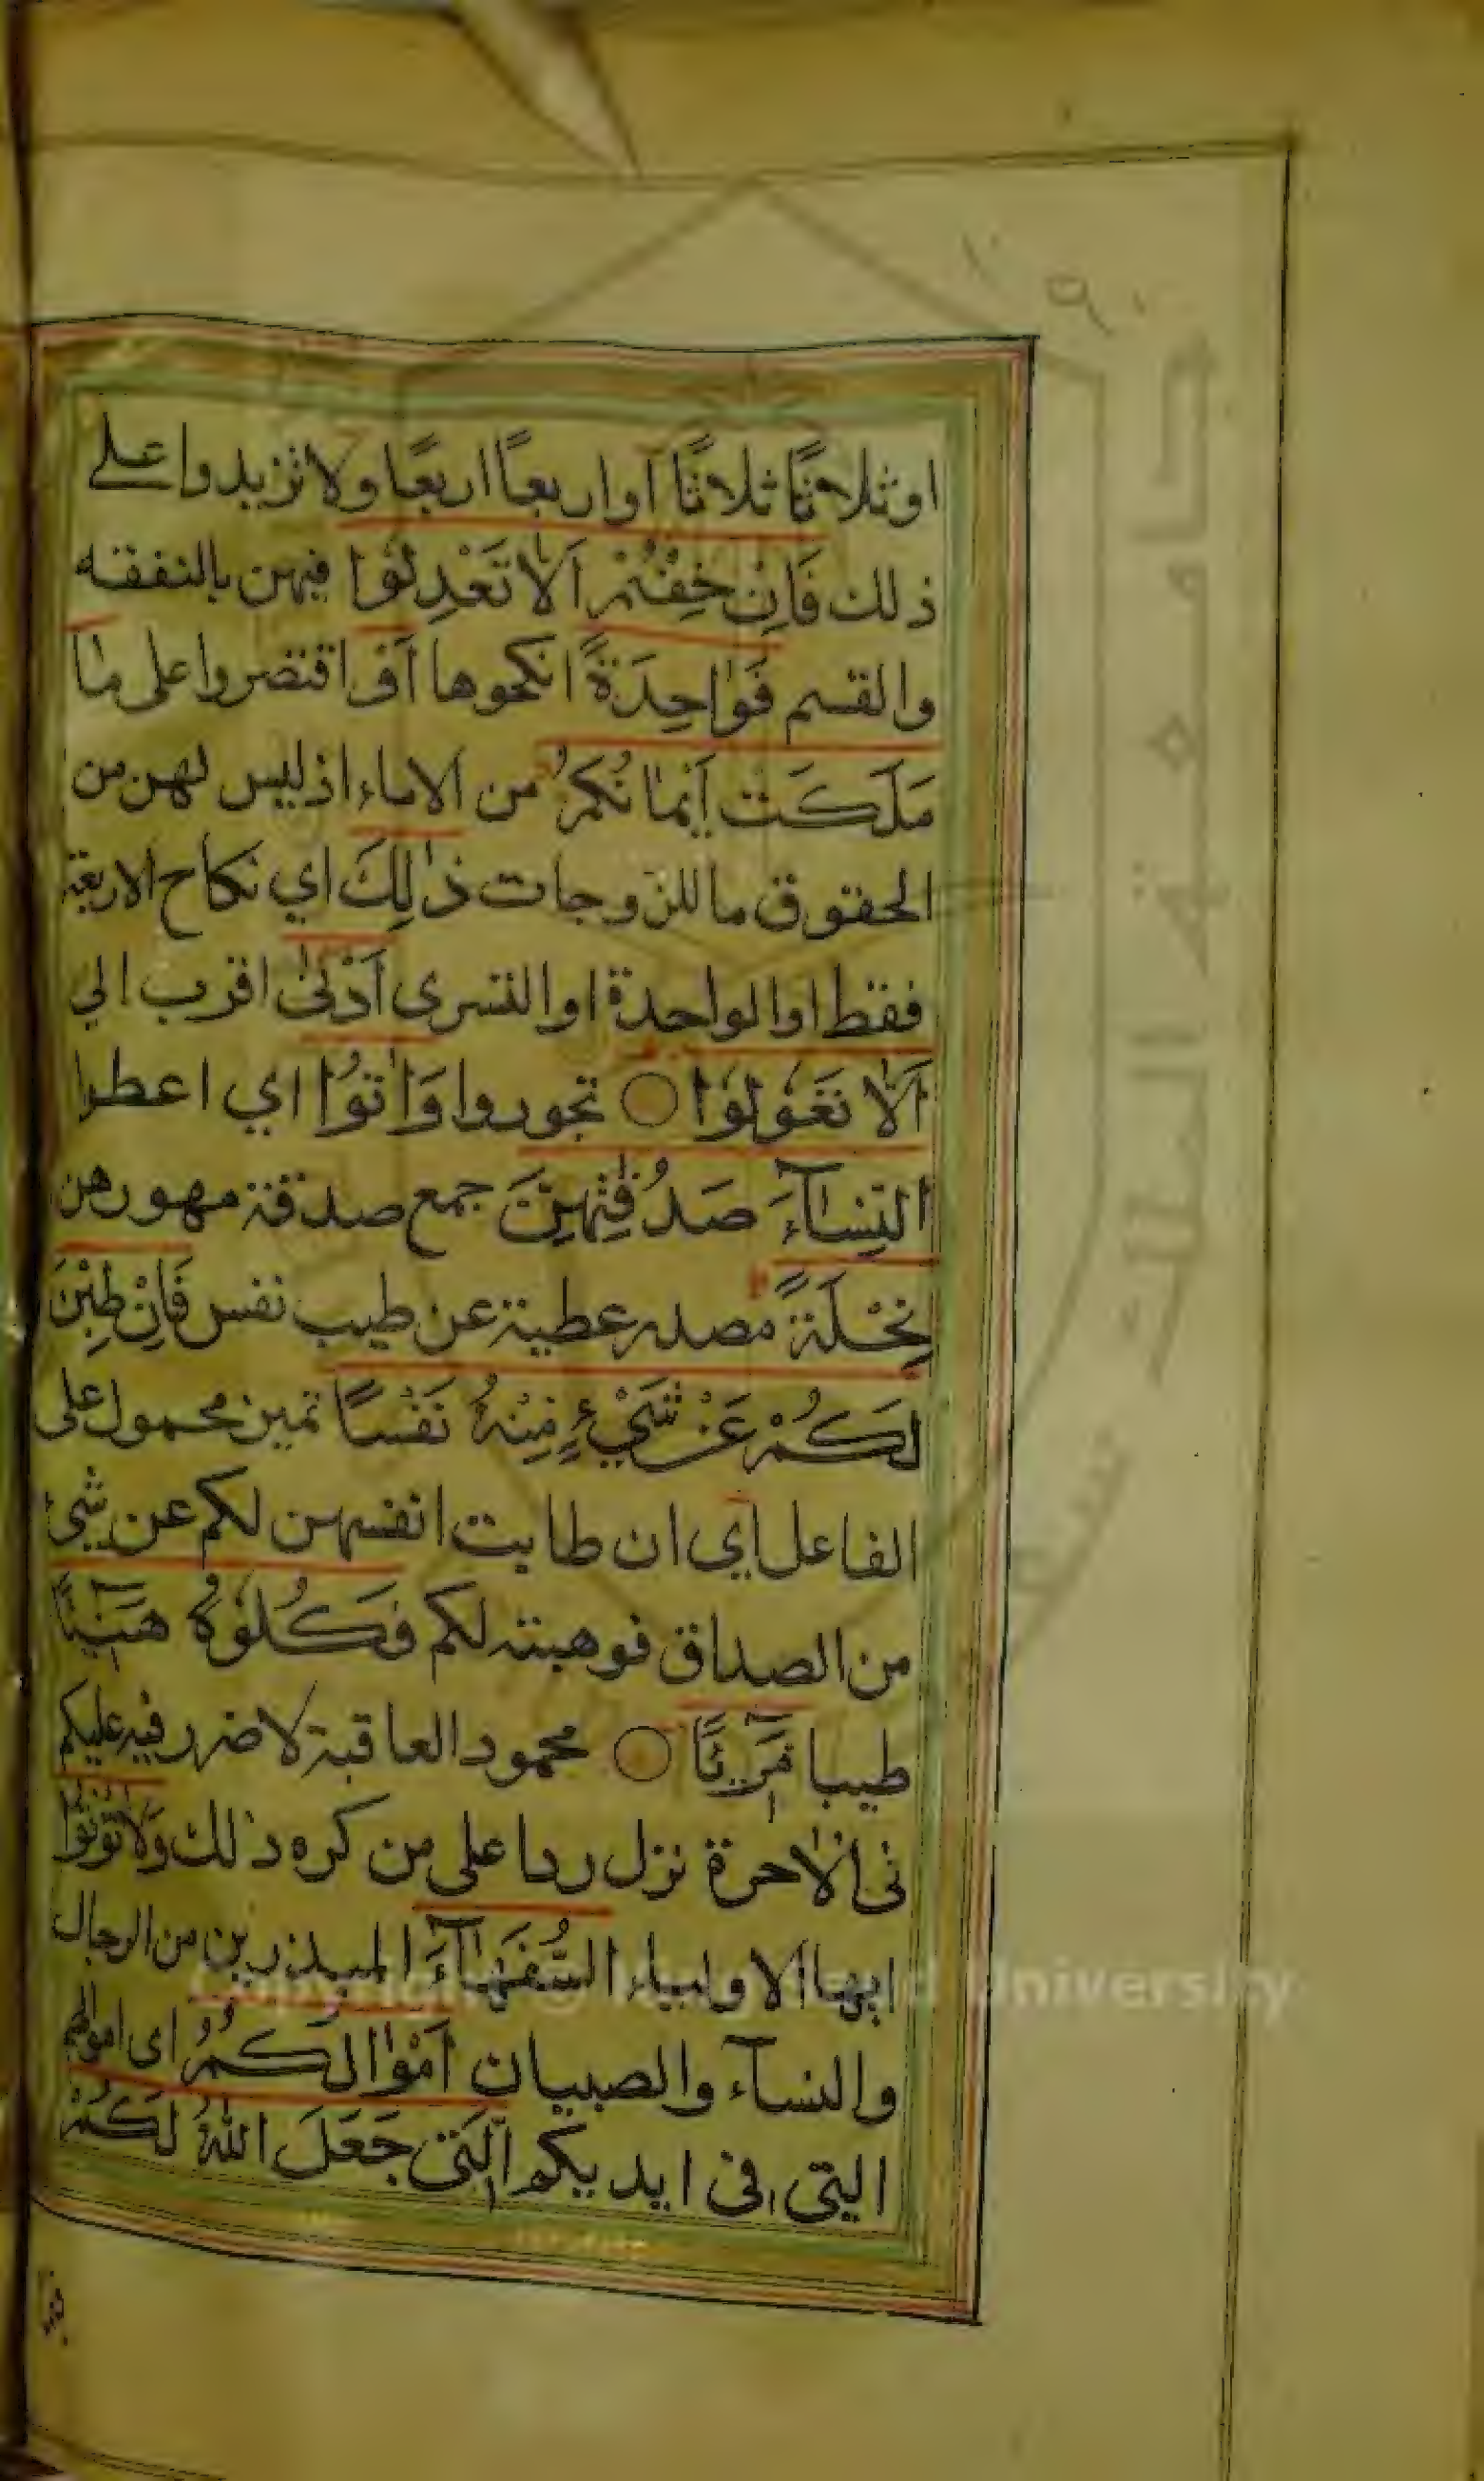 اوثلاثًا ثلاثًا أواربعًا اربعًا ولاتزيدوا علي
ذلك فَاِنْ خِفْتُمْ اَلَّا تَعْدِلُوْا فيهن بالنفقه
والقسم فَوَاحِدَةً انكحوها اَوْ اقتصروا على مَا
مَلَكَتْ اَيْمَانُكُمْ من الاماء اذليس لهن من
الحقوق ماللزوجات ذٰلِكَ اي نكاح الاربعة
فقط اوالواحدة اوالتسرى اَدْنٰى اقرب الي
اَلَّا تَعُوْلُوْا تجوروا وَاٰتُوْا اي اعطوا
النِّسَآءَ صَدُقٰتِهِنَّ جمع صدقة مهورهن
نِحْلَةً مصدر عطية عن طيب نفس فَاِنْ طِبْنَ
لَكُمْ عَنْ شَيْءٍ مِنْهُ نَفْسًا تميز محمول على
الفاعل اي ان طابت انفسهن لكم عن شئ
من الصداق فوهبته لكم فَكُلُوْهُ هَنِيْٓئًا
طيبا مَرِيْٓئًا محمود العاقبة لاضرر فيه عليكم
فى الاخرة نزل ردا على من كره ذلك وَلَا تُؤْتُوْا
ايها الاولياء السُّفَهَآءَ المبذرين من الرجال
والنسآء والصبيان اَمْوَالَكُمُ اى اموالهم
التي فى ايديكم الَّتِىْ جَعَلَ اللّٰهُ لَكُمْ
جامعة الملك سعود
Copyright © King Saud University